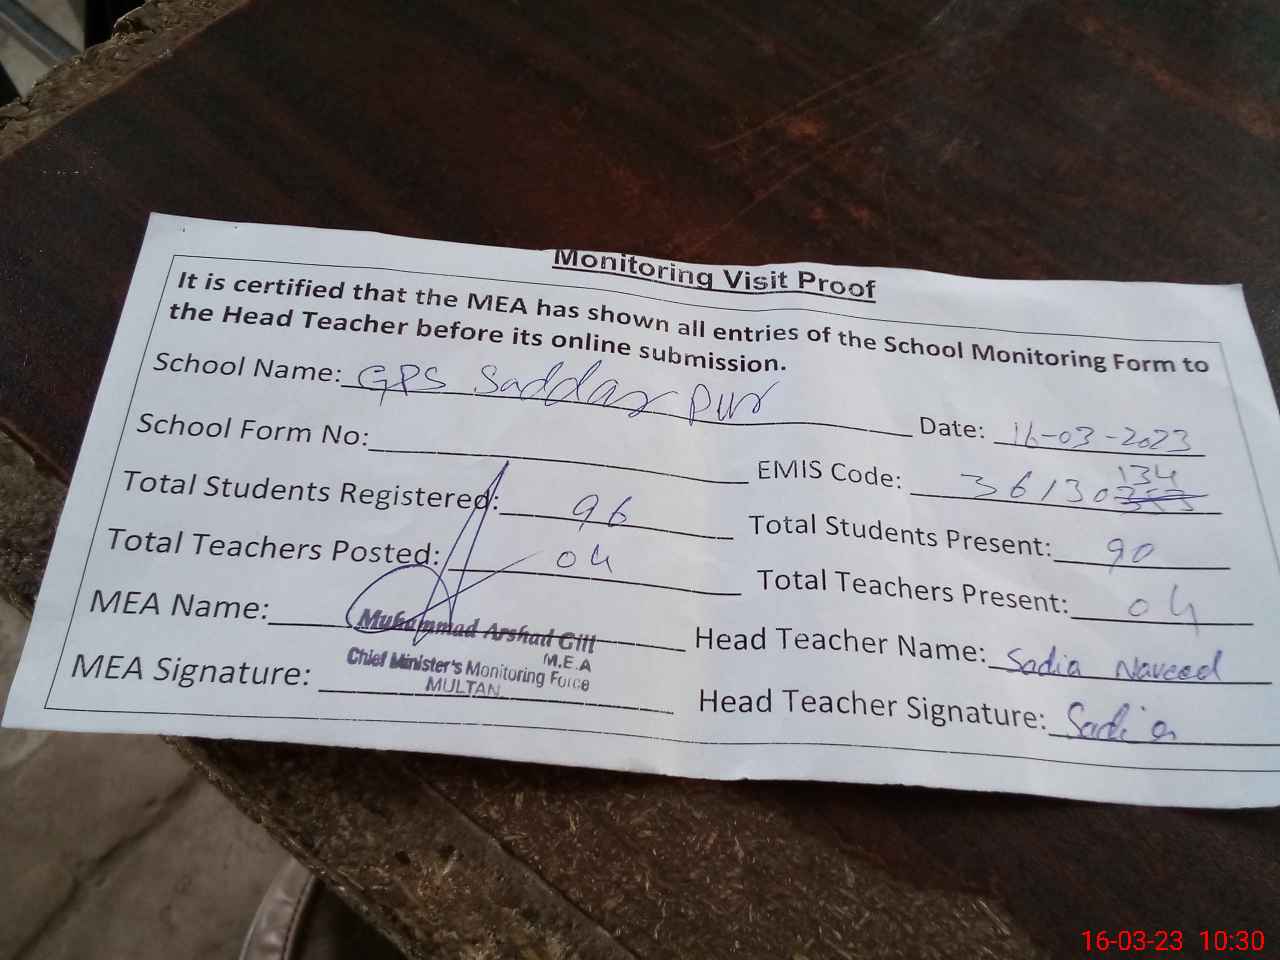 Monitoring Visit Proof
It is certified that the MEA has shown all entries of the School Monitoring Form to
the Head Teacher before its online submission.
School Name: GPS Saddar pur
Date: 16-03-2023
School Form No:
EMIS Code: 36130353 134
Total Students Registered: 96
Total Students Present: 90
Total Teachers Posted: 04
Total Teachers Present: 04
MEA Name: Muhammad Arshad Gill
M.E.A
Head Teacher Name: Sadia Naveed
MEA Signature: Chief Minister's Monitoring Force
MULTAN
Head Teacher Signature: Sadia
16-03-23 10:30